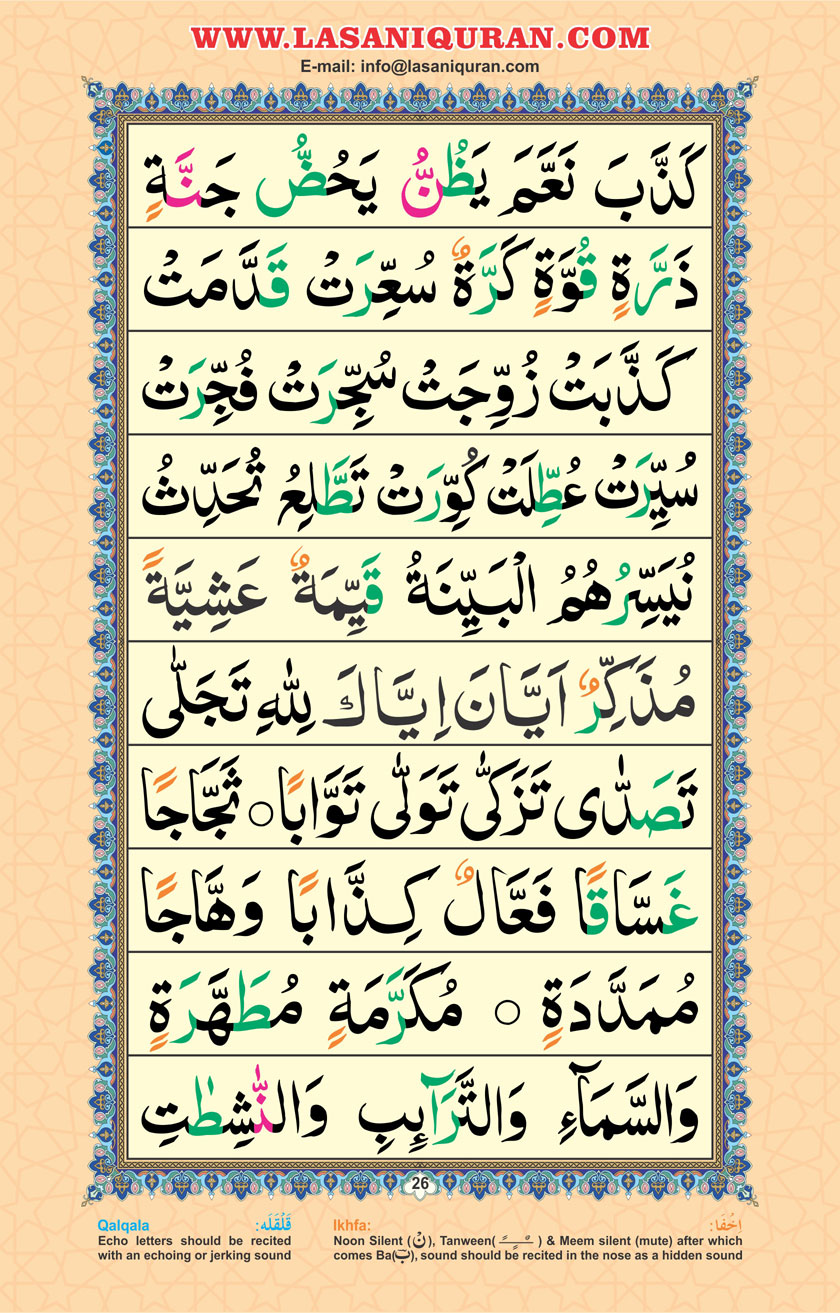 WWW.LASANIQURAN.COM
E-mail: info@lasaniquran.com
كَذَّبَ نَعَّمَ يَظُنُّ يَحُضُّ جَنَّةٍ
ذَرَّةٍ قُوَّةٍ كَرَّةٌ سُعِّرَتْ قَدَّمَتْ
كَذَّبَتْ زُوِّجَتْ سُجِّرَتْ فُجِّرَتْ
سُيِّرَتْ عُطِّلَتْ كُوِّرَتْ تَطَّلِعُ تُحَدِّثُ
نُيَسِّرُهُمُ الْبَيِّنَةُ قَيِّمَةٌ عَشِيَّةً
مُذَكِّرٌ اَيَّانَ اِيَّاكَ لِلّٰهِ تَجَلّٰى
تَصَدّٰى تَزَكّٰى تَوَلّٰى تَوَّابًا ○ ثَجَّاجًا
غَسَّاقًا فَعَّالٌ كِذَّابًا وَهَّاجًا
مُمَدَّدَةٍ ○ مُكَرَّمَةٍ مُطَهَّرَةٍ
وَالسَّمَآءِ وَالتَّرَآئِبِ وَالنّٰشِطٰتِ
26
Qalqala قَلْقَلَه:
Echo letters should be recited
with an echoing or jerking sound
Ikhfa: اِخْفَا:
Noon Silent (نْ), Tanween( ـًـــٍـــٌـ ) & Meem silent (mute) after which
comes Ba(بَ), sound should be recited in the nose as a hidden sound